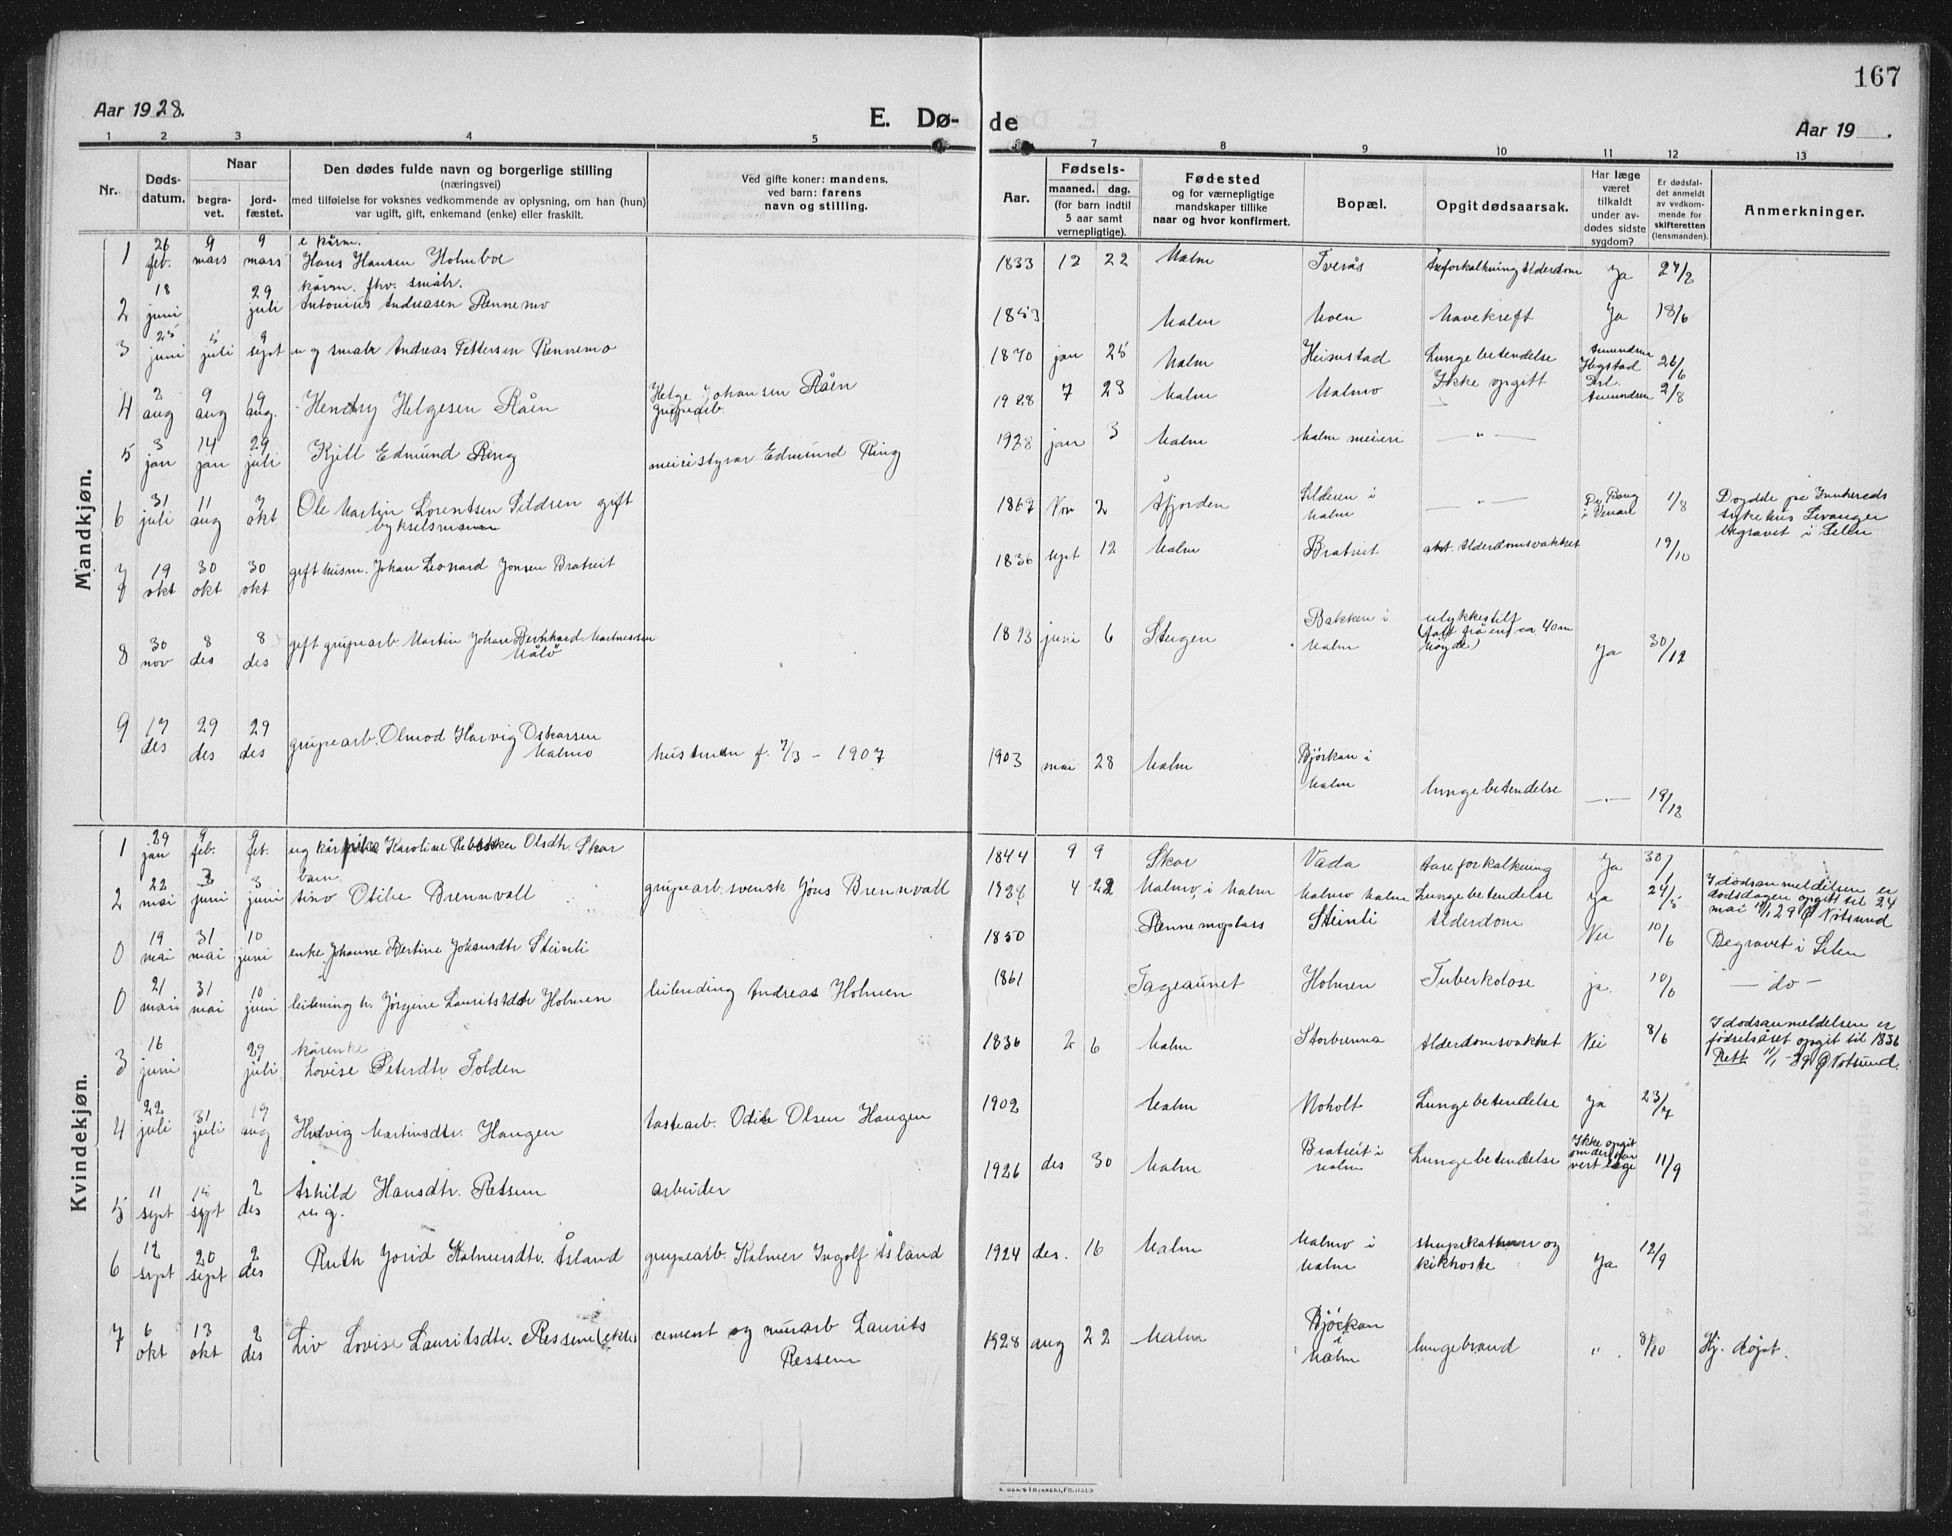 167
Aar 1928.
E. Dø-
de
Aar 19 .
1 2 3 4 5
6 7 8 9 10 11 12 13
Nr.
Døds-
datum.
Naar
begra-
vet.
jord-
fæstet.
Den dødes fulde navn og borgerlige stilling
(næringsvei)
med tilføielse for voksnes vedkommende av oplysning, om han (hun)
var ugift, gift, enkemand (enke) eller fraskilt.
Ved gifte koner: mandens,
ved barn: farens
navn og stilling.
Aar.
Fødsels-
maaned. dag.
(for barn indtil
5 aar samt
vernepligtige).
Fødested
og for værnepligtige
mandskaper tillike
naar og hvor konfirmert.
Bopæl.
Opgit dødsaarsak.
Har læge
været
tilkaldt
under av-
dødes sidste
sygdom?
Er dødsfal-
det anmeldt
av vedkom-
mende for
skifteretten
(lensmanden).
Anmerkninger.
Mandkjøn.
1 26 feb. 9 mars 9 mars e kårm. Hans Hansen Holmboe 1833 12 22 Malm Tverås Åreforkalkning Alderdom Ja 27/2
2 18 juni 29 juli kårm. fhv. småbr. Antonius Andreasen Rennemo 1853 Malm Moen Mavekreft Ja 18/6
3 25 juni 5 juli 9 sept ug småbr Andreas Pettersen Rennemo 1870 jan 25 Malm Heimstad Lungebetendelse Amundsen Hegstad 26/6
4 2 aug 9 aug 19 aug. Hendry Helgesen Råen Helge Johansen Råen grupearb. 1928 7 23 Malm Malmo Ikke opgitt Amundsen 2/8
5 3 jan 14 jan 29 juli Kjell Edmund Ring meieristyrar Edmund Ring 1928 jan 3 Malm Malm meieri — " —
6 31 juli 11 aug 7 okt Ole Martin Lorentsen Sildren gift bykselsmann 1867 Nov 2 Åfjorden Silderen i Malm — " — 1/8 Døydde på Innherads sykehus Levanger begravet i Selen
7 19 okt 30 okt 30 okt gift husm. Johan Leonard Jonsen Bratreit 1836 sept 12 Malm Bratreit Alderdomsvakket 19/10
8 30 nov 8 des 8 des gift grupearb. Martin Johan Bernhard Martinessen Målø 1893 juni 6 Stugen Bakken i Malm ulykkestilf (falt frå en ca 40m høyde) Ja 30/12
9 17 des 29 des 29 des grupearb. Olmod Harvig Oskarsen Malmo hustruen f. 7/3 - 1907 1903 mai 28 Malm Bjørkan i Malm lungebetendelse — " — 19/12
Kvindekjøn.
1 29 jan 9 feb. 9 feb. ug kår pike Karoline Rebekka Olsdtr. Skar 1844 9 9 Skar Vada Aareforkalkning Ja 30/1
2 22 mai 3 juni 3 juni barn. Otilie Brennvall grupearb. svensk Jöns Brennvall 1928 4 22 Malmo, i Malm Malmo Malm Lungebetendelse ya 24/5 I dödsanmeldelsen er dödsdagen opgitt til 24 mai 11/1 29 Nøtsund
0 19 mai 31 mai 10 juni enke Johanne Bertine Johansdtr Steinli 1850 Rennemoplass Steinli Alderdom Nei 10/6 Begravet i Selen
0 21 mai 31 mai 10 juni Jørgine Lauritsdtr Holmen leilending Andreas Holmen 1861 Fageaunet Holmen Tuberkolose ja. 10/6 — do —
3 16 juni 29 juli kårenke Lovise Petersdtr Folden 1836 2 6 Malm Storbrenna Alderdomsvakket Nei 8/6 I dödsanmeldelsen er födselsåret opgit til 1836 Rett 11/1 -29 Nøtsund
4 22 juli 31 juli 19 aug Hedvig Martinsdtr. Haugen lastearb. Odin Olsen Haugen 1902 Malm Moholt Lungebetendelse Ja 23/7
5 11 sept 18 sept 2 des Åshild Hansdtr. Ratsem ug. arbeider 1926 des 30 Malm Bratreit i Malm Lungebetendelse Ikke opgit om der har vert læge 11/9
6 12 sept 20 sept 2 des Ruth Jorid Kalmersdtr. Åsland grupearb. Kalmer Ingolf Åsland 1924 des. 16 Malm Malmo i Malm strupekatharr og kikhoste Ja 12/9
7 6 okt 13 okt 2 des Liv Lovise Lauritsdtr. Ressem (ekte) cement og murarb Laurits Ressem 1928 aug 22 Malm Bjørkan i Malm lungebrand " . 8/10 Hj. døpt.